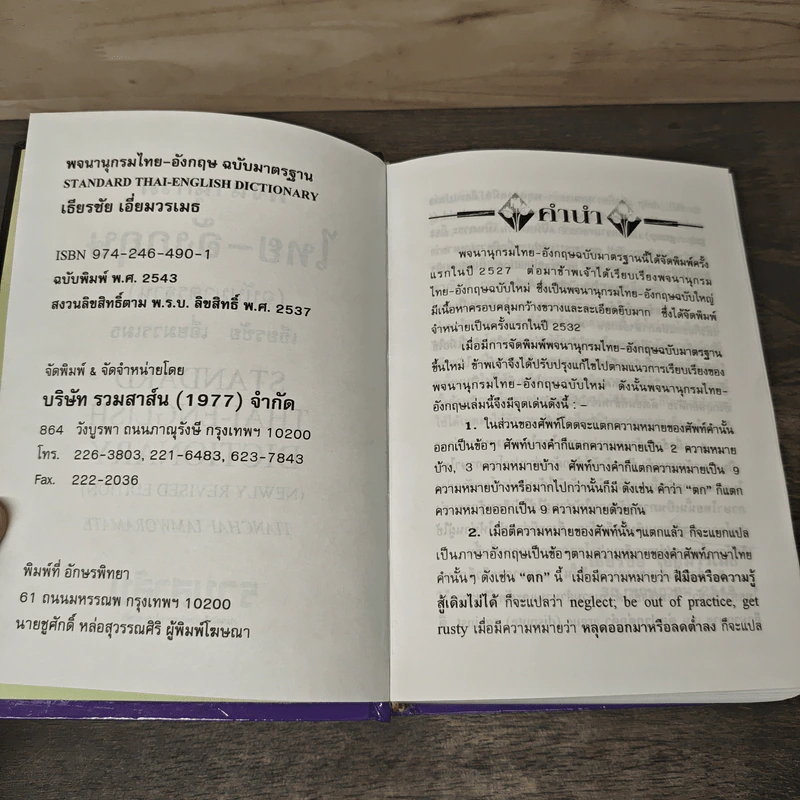 พจนานุกรมไทย-อังกฤษ ฉบับมาตรฐาน
STANDARD THAI-ENGLISH DICTIONARY
เธียรชัย เอี่ยมวรเมธ
ISBN 974-246-490-1
ฉบับพิมพ์ พ.ศ. 2543
สงวนลิขสิทธิ์ตาม พ.ร.บ. ลิขสิทธิ์ พ.ศ. 2537
จัดพิมพ์ & จัดจำหน่ายโดย
บริษัท รวมสาส์น (1977) จำกัด
864 วังบูรพา ถนนภาณุรังษี กรุงเทพฯ 10200
โทร. 226-3803, 221-6483, 623-7843
Fax. 222-2036
พิมพ์ที่ อักษรพิทยา
61 ถนนมหรรณพ กรุงเทพฯ 10200
นายชูศักดิ์ หล่อสุวรรณศิริ ผู้พิมพ์โฆษณา
คำนำ
พจนานุกรมไทย-อังกฤษฉบับมาตรฐานนี้ได้จัดพิมพ์ครั้ง
แรกในปี 2527 ต่อมาข้าพเจ้าได้เรียบเรียงพจนานุกรม
ไทย-อังกฤษฉบับใหม่ ซึ่งเป็นพจนานุกรมไทย-อังกฤษฉบับใหญ่
มีเนื้อหาครอบคลุมกว้างขวางและละเอียดยิบมาก ซึ่งได้จัดพิมพ์
จำหน่ายเป็นครั้งแรกในปี 2532
เมื่อมีการจัดพิมพ์พจนานุกรมไทย-อังกฤษฉบับมาตรฐาน
ขึ้นใหม่ ข้าพเจ้าจึงได้ปรับปรุงแก้ไขไปตามแนวการเรียบเรียงของ
พจนานุกรมไทย-อังกฤษฉบับใหม่ ดังนั้นพจนานุกรมไทย-
อังกฤษเล่มนี้จึงมีจุดเด่นดังนี้ : -
1. ในส่วนของศัพท์โดดจะแตกความหมายของศัพท์คำนั้น
ออกเป็นข้อๆ ศัพท์บางคำก็แตกความหมายเป็น 2 ความหมาย
บ้าง, 3 ความหมายบ้าง ศัพท์บางคำก็แตกความหมายเป็น 9
ความหมายบ้างหรือมากไปกว่านั้นก็มี ดังเช่น คำว่า "ตก" ก็แตก
ความหมายออกเป็น 9 ความหมายด้วยกัน
2. เมื่อตีความหมายของศัพท์นั้นๆแตกแล้ว ก็จะแยกแปล
เป็นภาษาอังกฤษเป็นข้อๆตามความหมายของคำศัพท์ภาษาไทย
คำนั้นๆ ดังเช่น "ตก" นี้ เมื่อมีความหมายว่า ฝีมือหรือความรู้
สู้เดิมไม่ได้ ก็จะแปลว่า neglect; be out of practice, get
rusty เมื่อมีความหมายว่า หลุดออกมาหรือลดต่ำลง ก็จะแปล